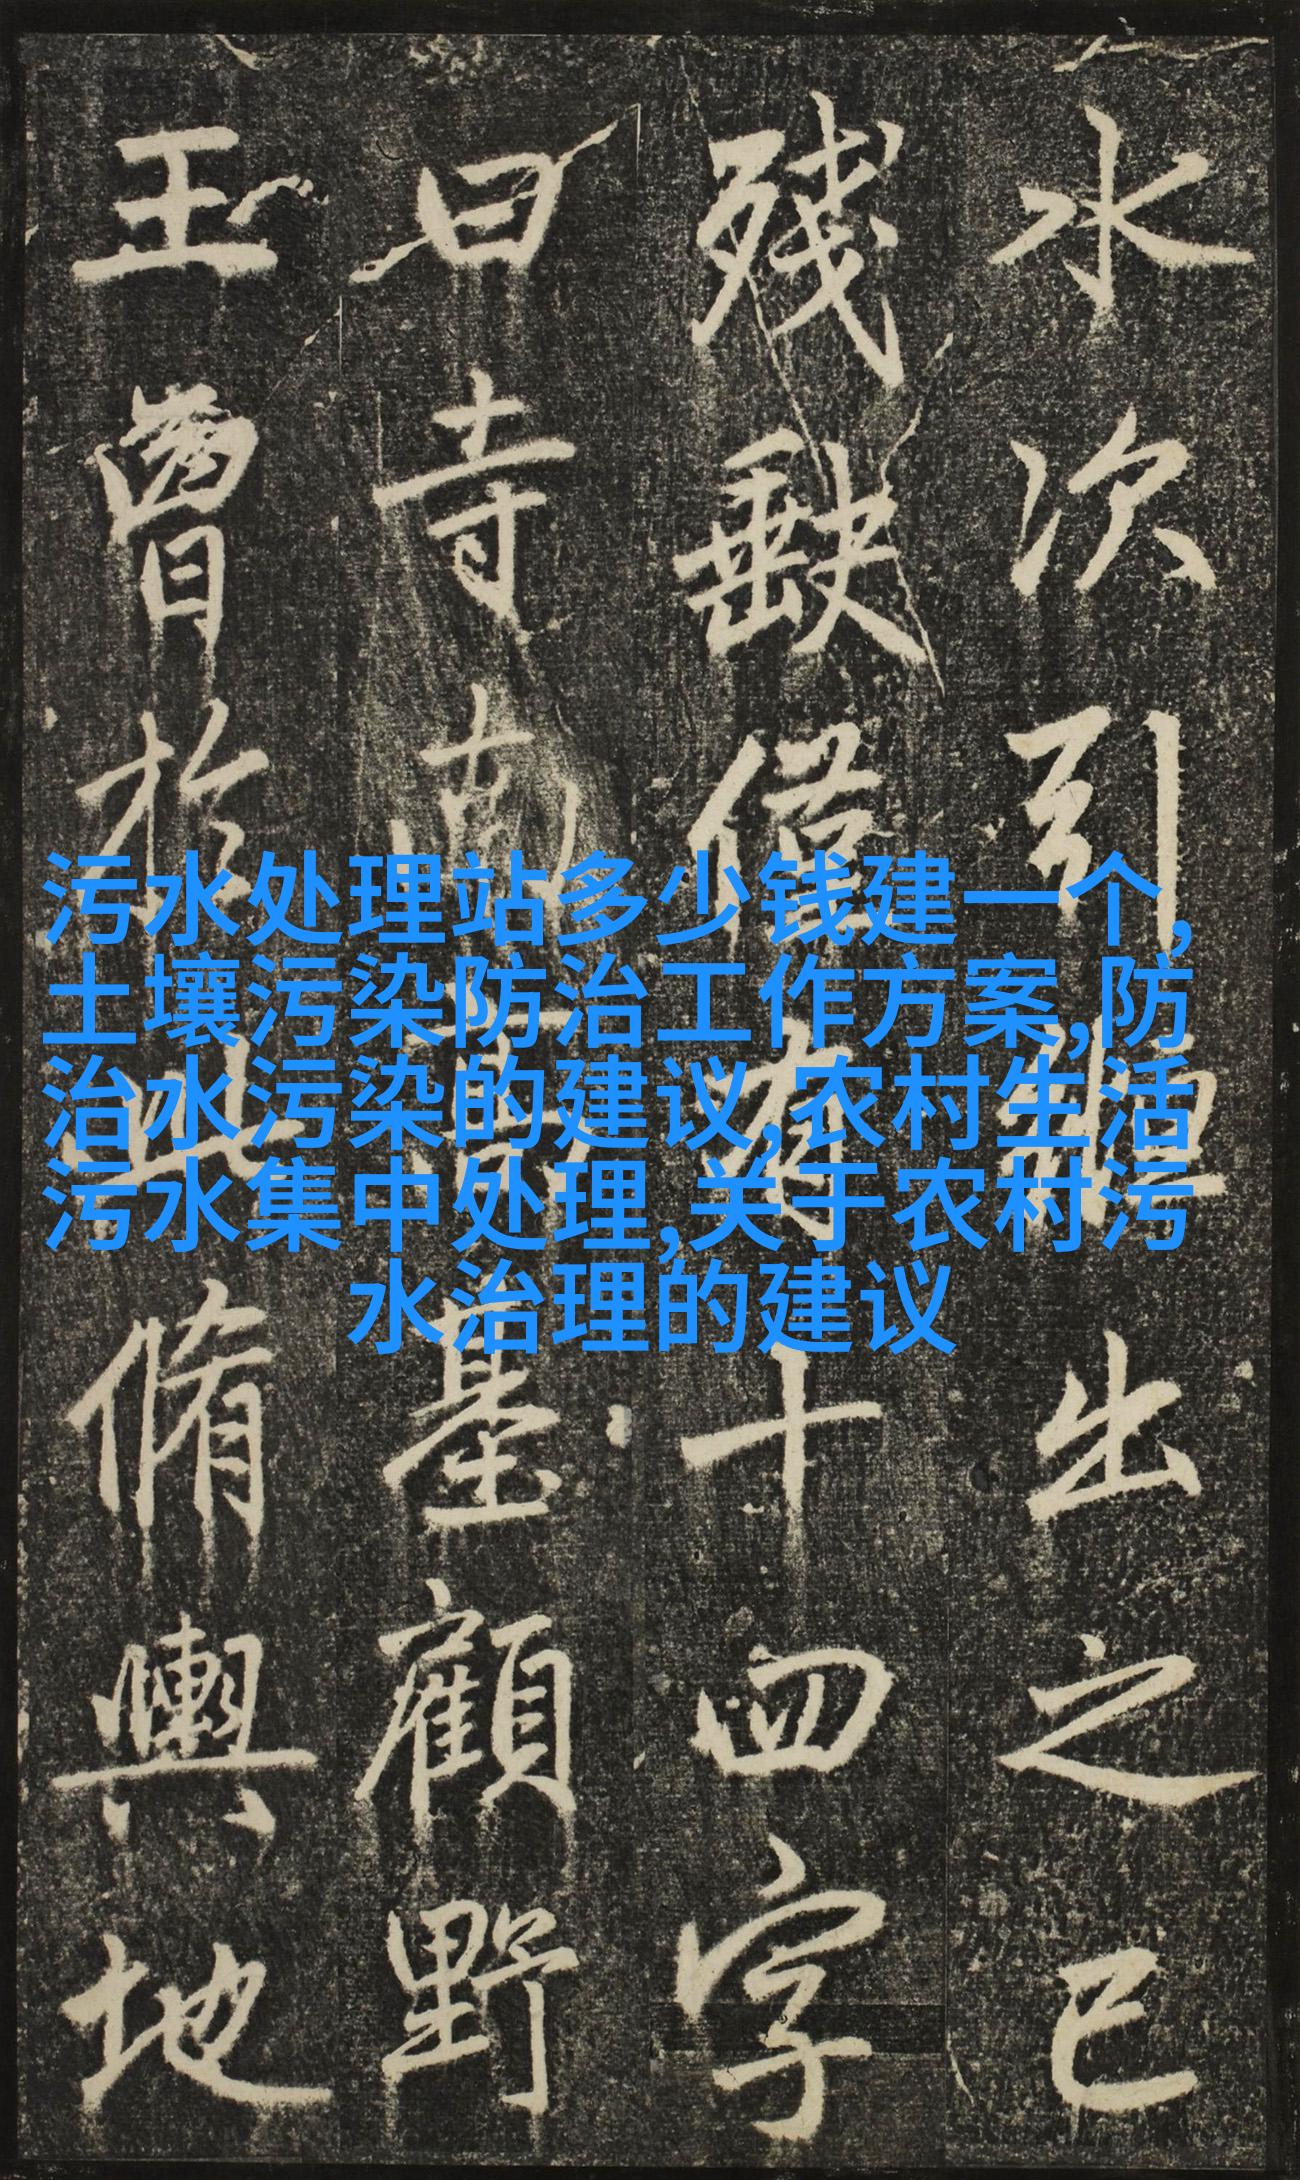 污水处理站多少钱建一个,
土壤污染防治工作方案,防
治水污染的建议,农村生活
污水集中处理,关于农村污
水治理的建议
水次引出之已
殘缺僅有十四字
曰寺南高基顧野
王曾於脩輿地